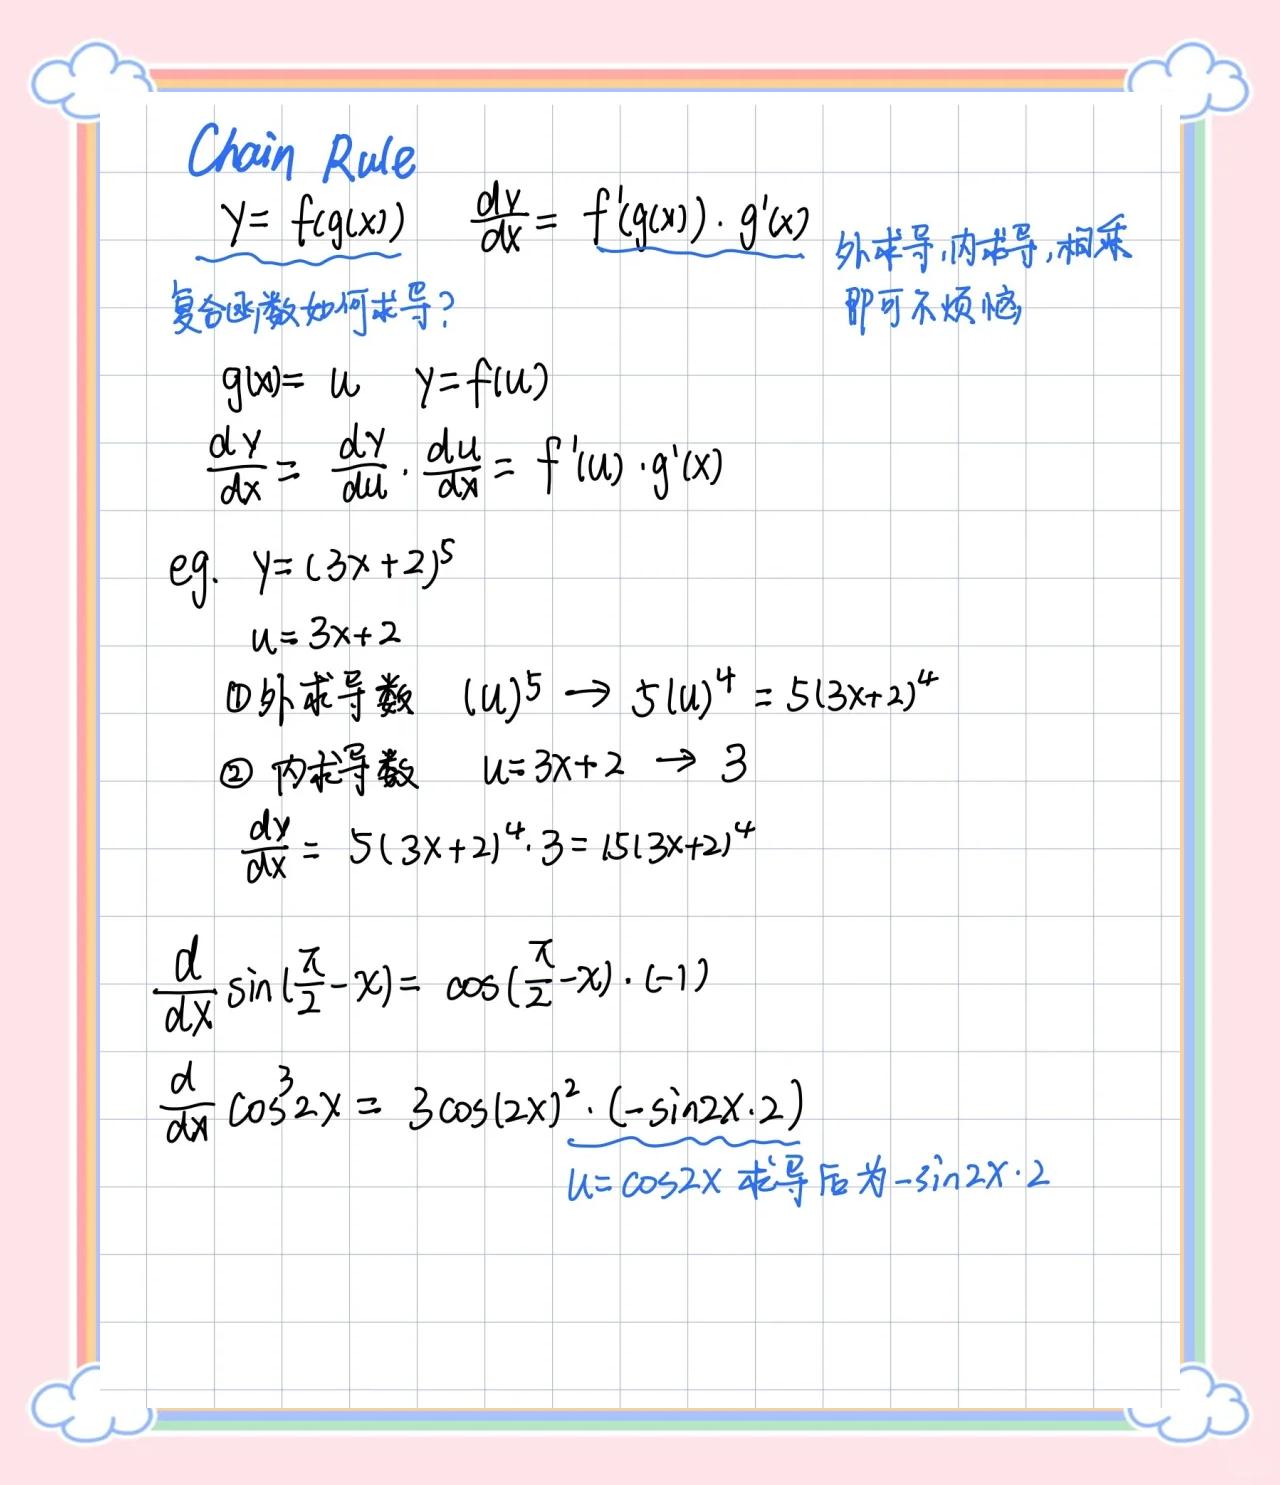 Chain Rule
y = f(g(x))    dy/dx = f'(g(x)) · g'(x)
外求导,内求导,相乘
即可不烦恼
复合函数如何求导?
g(x) = u    y = f(u)
dy/dx = dy/du · du/dx = f'(u) · g'(x)
eg. y = (3x+2)⁵
u = 3x+2
① 外求导数    (u)⁵ → 5(u)⁴ = 5(3x+2)⁴
② 内求导数    u = 3x+2 → 3
dy/dx = 5(3x+2)⁴ · 3 = 15(3x+2)⁴
d/dx sin(π/2 - x) = cos(π/2 - x) · (-1)
d/dx cos³2x = 3cos(2x)² · (-sin2x · 2)
u = cos2x 求导后为 -sin2x · 2